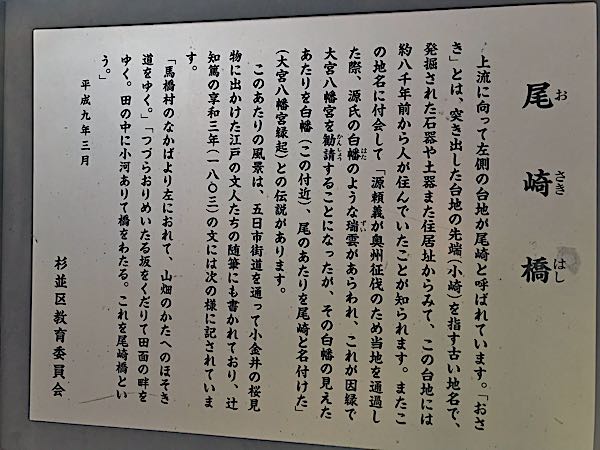 尾崎橋
おさきはし
上流に向って左側の台地が尾崎と呼ばれています。「おさ
き」とは、突き出した台地の先端(小崎)を指す古い地名で、
発掘された石器や土器また住居址からみて、この台地には
約八千年前から人が住んでいたことが知られます。またこ
の地名に付会して「源頼義が奥州征伐のため当地を通過し
た際、源氏の白幡のような瑞雲があらわれ、これが因縁で
はたずい
大宮八幡宮を勧請することになったが、その白幡の見えた
かんじょう
あたりを白幡(この付近)、尾のあたりを尾崎と名付けた」
(大宮八幡宮縁起)との伝説があります。
このあたりの風景は、五日市街道を通って小金井の桜見
物に出かけた江戸の文人たちの随筆にも書かれており、辻
知篤の享和三年(一八〇三)の文には次の様に記されていま
す。
「馬橋村のなかばより左におれて、山畑のかたへのほそき
道をゆく。」「つづらおりめいたる坂をくだりて田面の畔を
ゆく。田の中に小河ありて橋をわたる。これを尾崎橋とい
う。」
平成九年三月
杉並区教育委員会